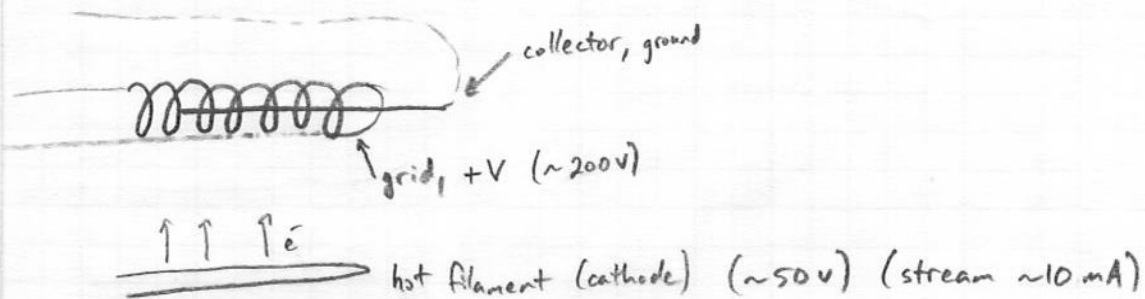 collector, ground
grid, +V (~200V)
e⁻
hot filament (cathode) (~50V) (stream ~10 mA)